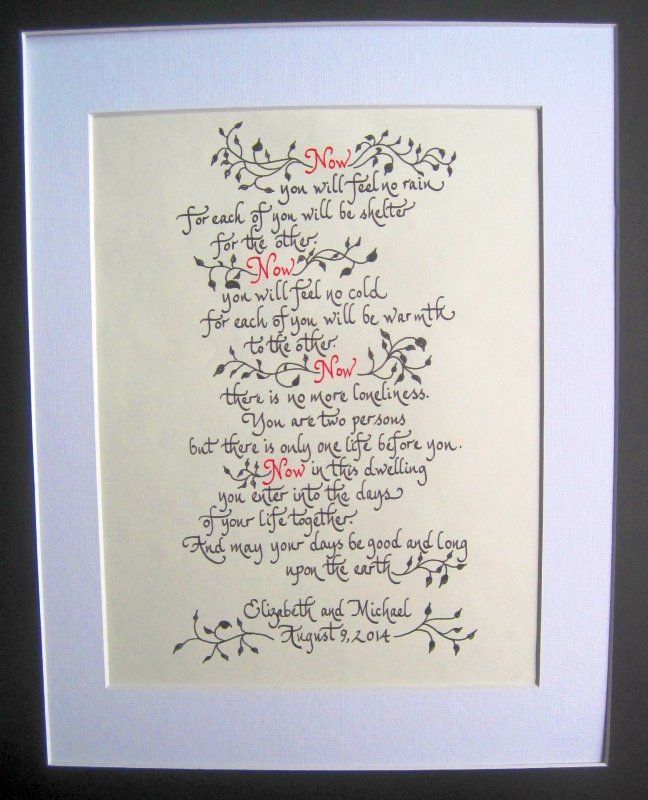 Now
you will feel no rain
for each of you will be shelter
for the other.
Now
you will feel no cold
for each of you will be warmth
to the other.
Now
there is no more loneliness.
You are two persons
but there is only one life before you.
Now in this dwelling
you enter into the days
of your life together.
And may your days be good and long
upon the earth
Elizabeth and Michael
August 9, 2014